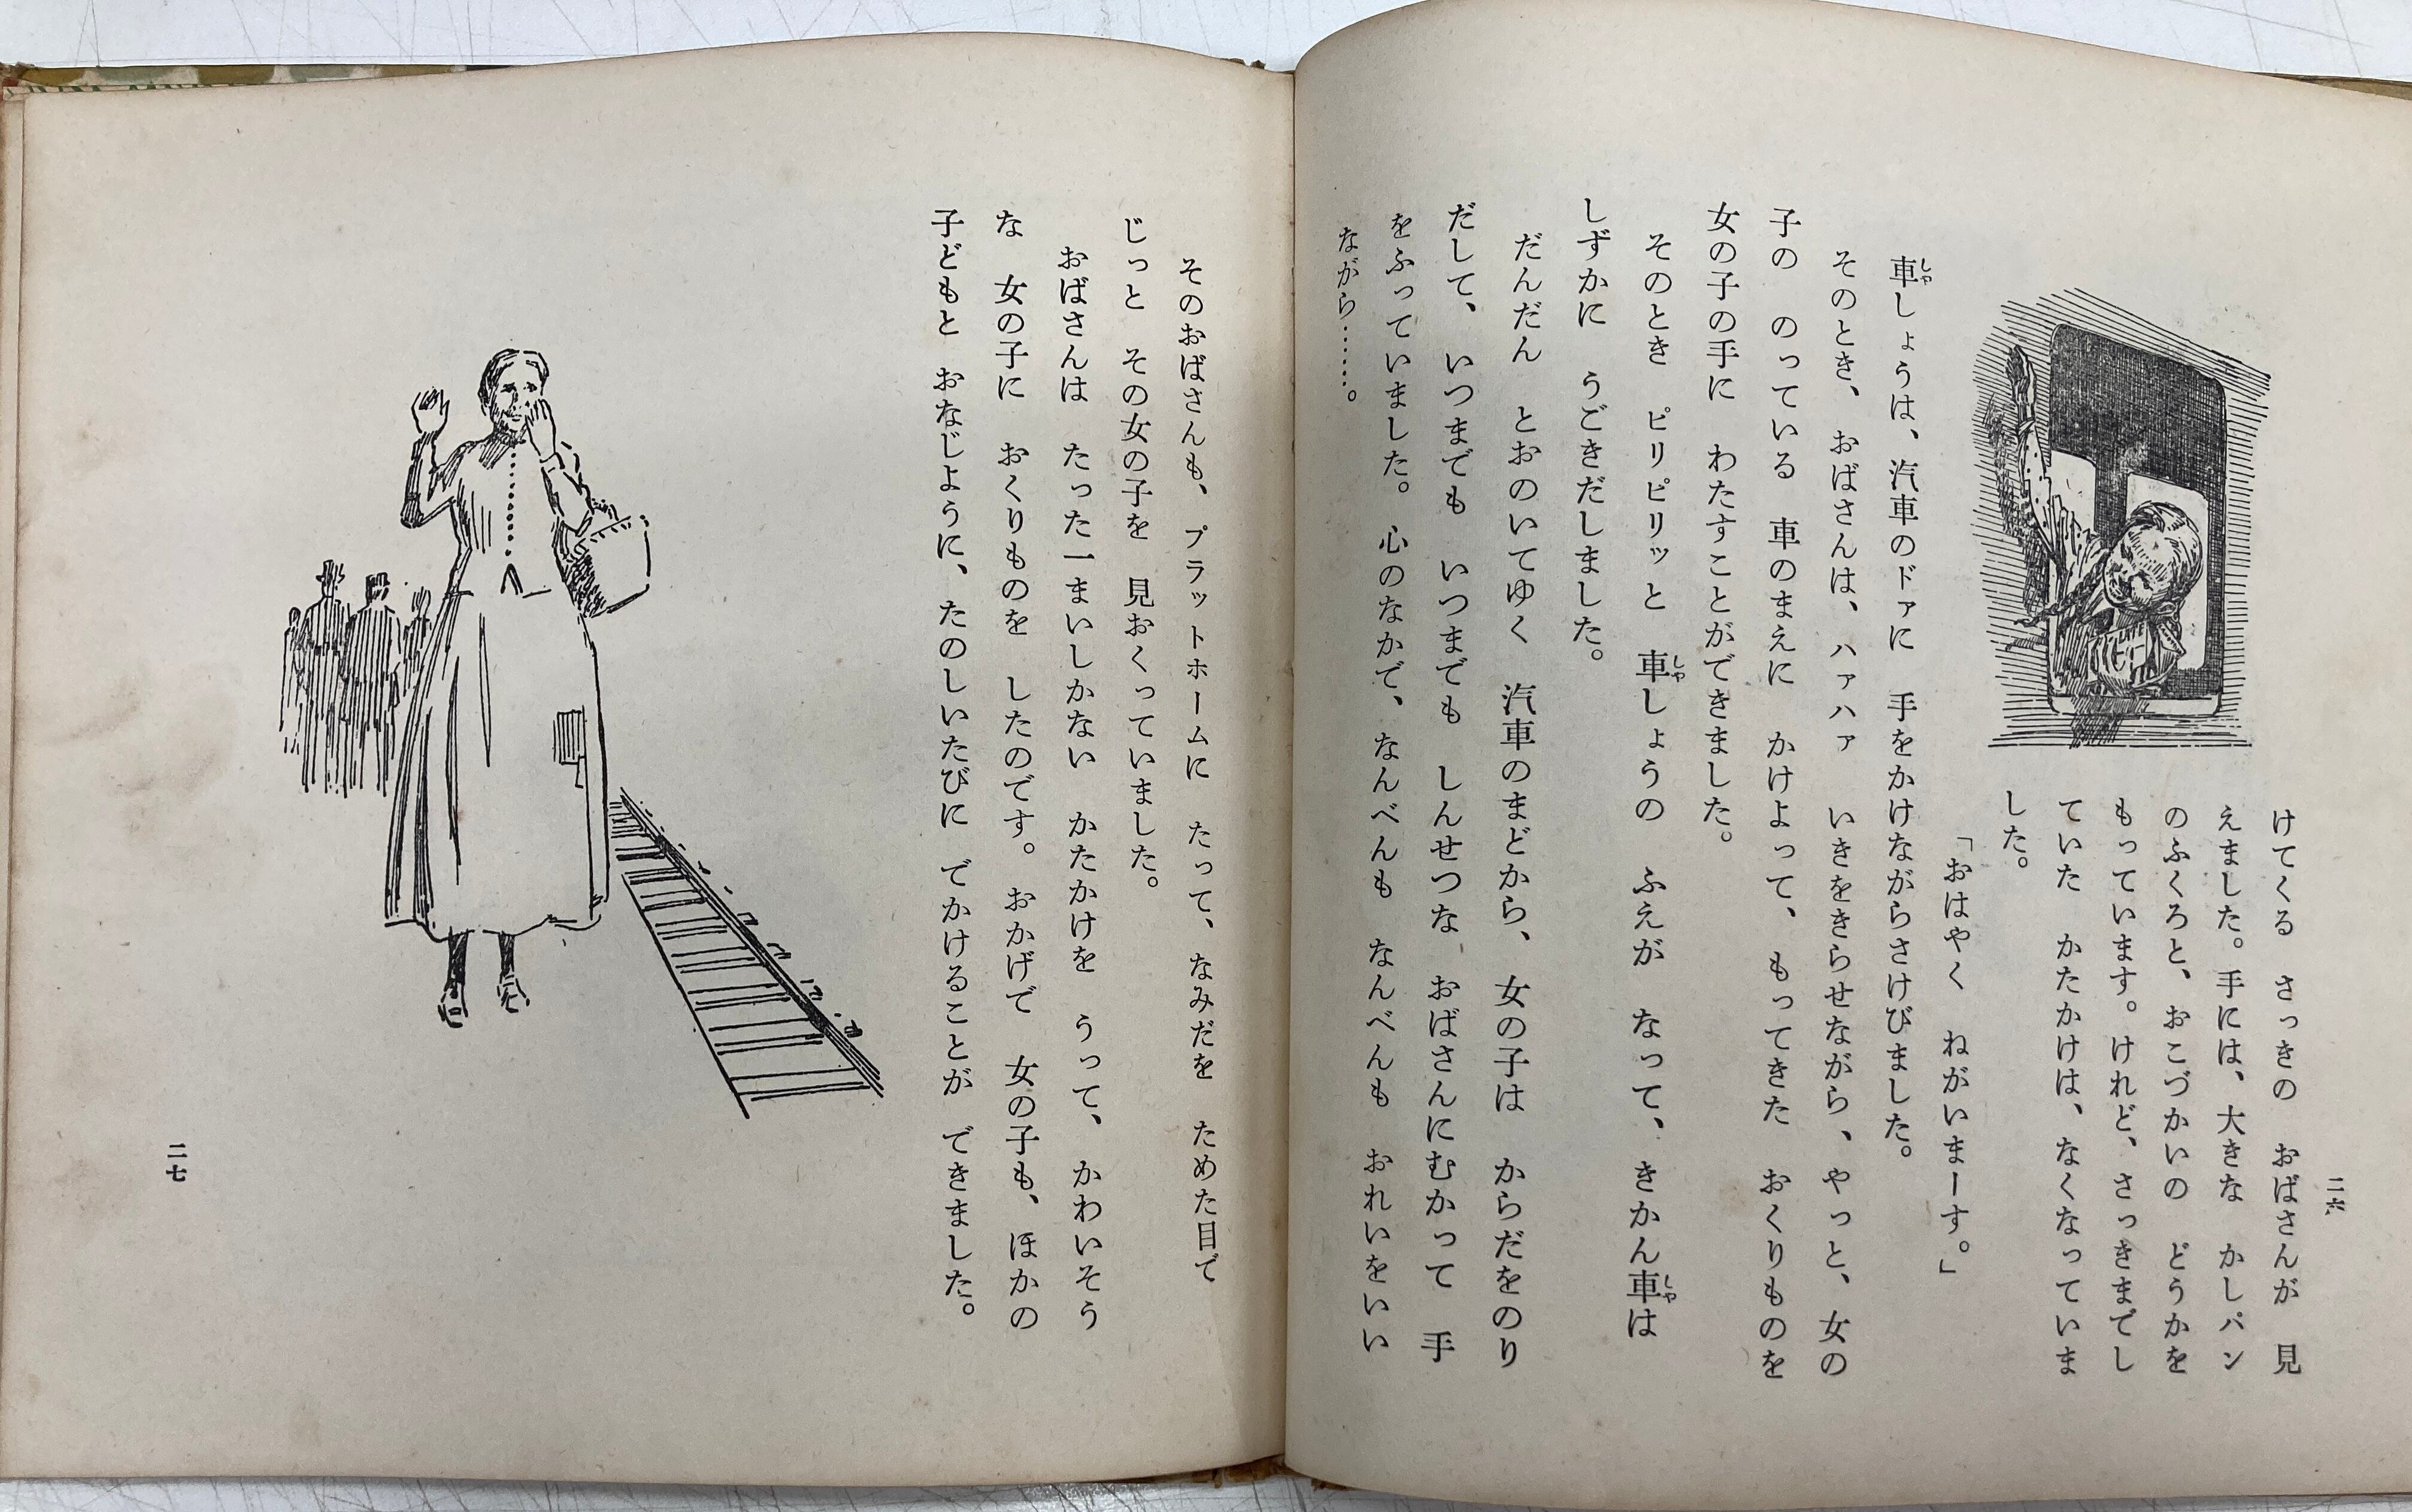 二六
けてくる　さっきの　おばさんが　見
えました。手には、大きな　かしパン
のふくろと、おこづかいの　どうかを
もっています。けれど、さっきまでし
ていた　かたかけは、なくなっていま
した。
「おはやく　ねがいまーす。」
車しょうは、汽車のドァに　手をかけながらさけびました。
そのとき、おばさんは、ハァハァ　いきをきらせながら、やっと、女の
子の　のっている　車のまえに　かけよって、もってきた　おくりものを
女の子の手に　わたすことができました。
そのとき　ピリピリッと　車しょうの　ふえが　なって、きかん車は
しずかに　うごきだしました。
だんだん　とおのいてゆく　汽車のまどから、女の子は　からだをのり
だして、いつまでも　いつまでも　しんせつな　おばさんにむかって　手
をふっていました。心のなかで、なんべんも　なんべんも　おれいをいい
ながら……。
そのおばさんも、プラットホームに　たって、なみだを　ためた目で
じっと　その女の子を　見おくっていました。
おばさんは　たった一まいしかない　かたかけを　うって、かわいそう
な　女の子に　おくりものを　したのです。おかげで　女の子も、ほかの
子どもと　おなじように、たのしいたびに　でかけることが　できました。
二七